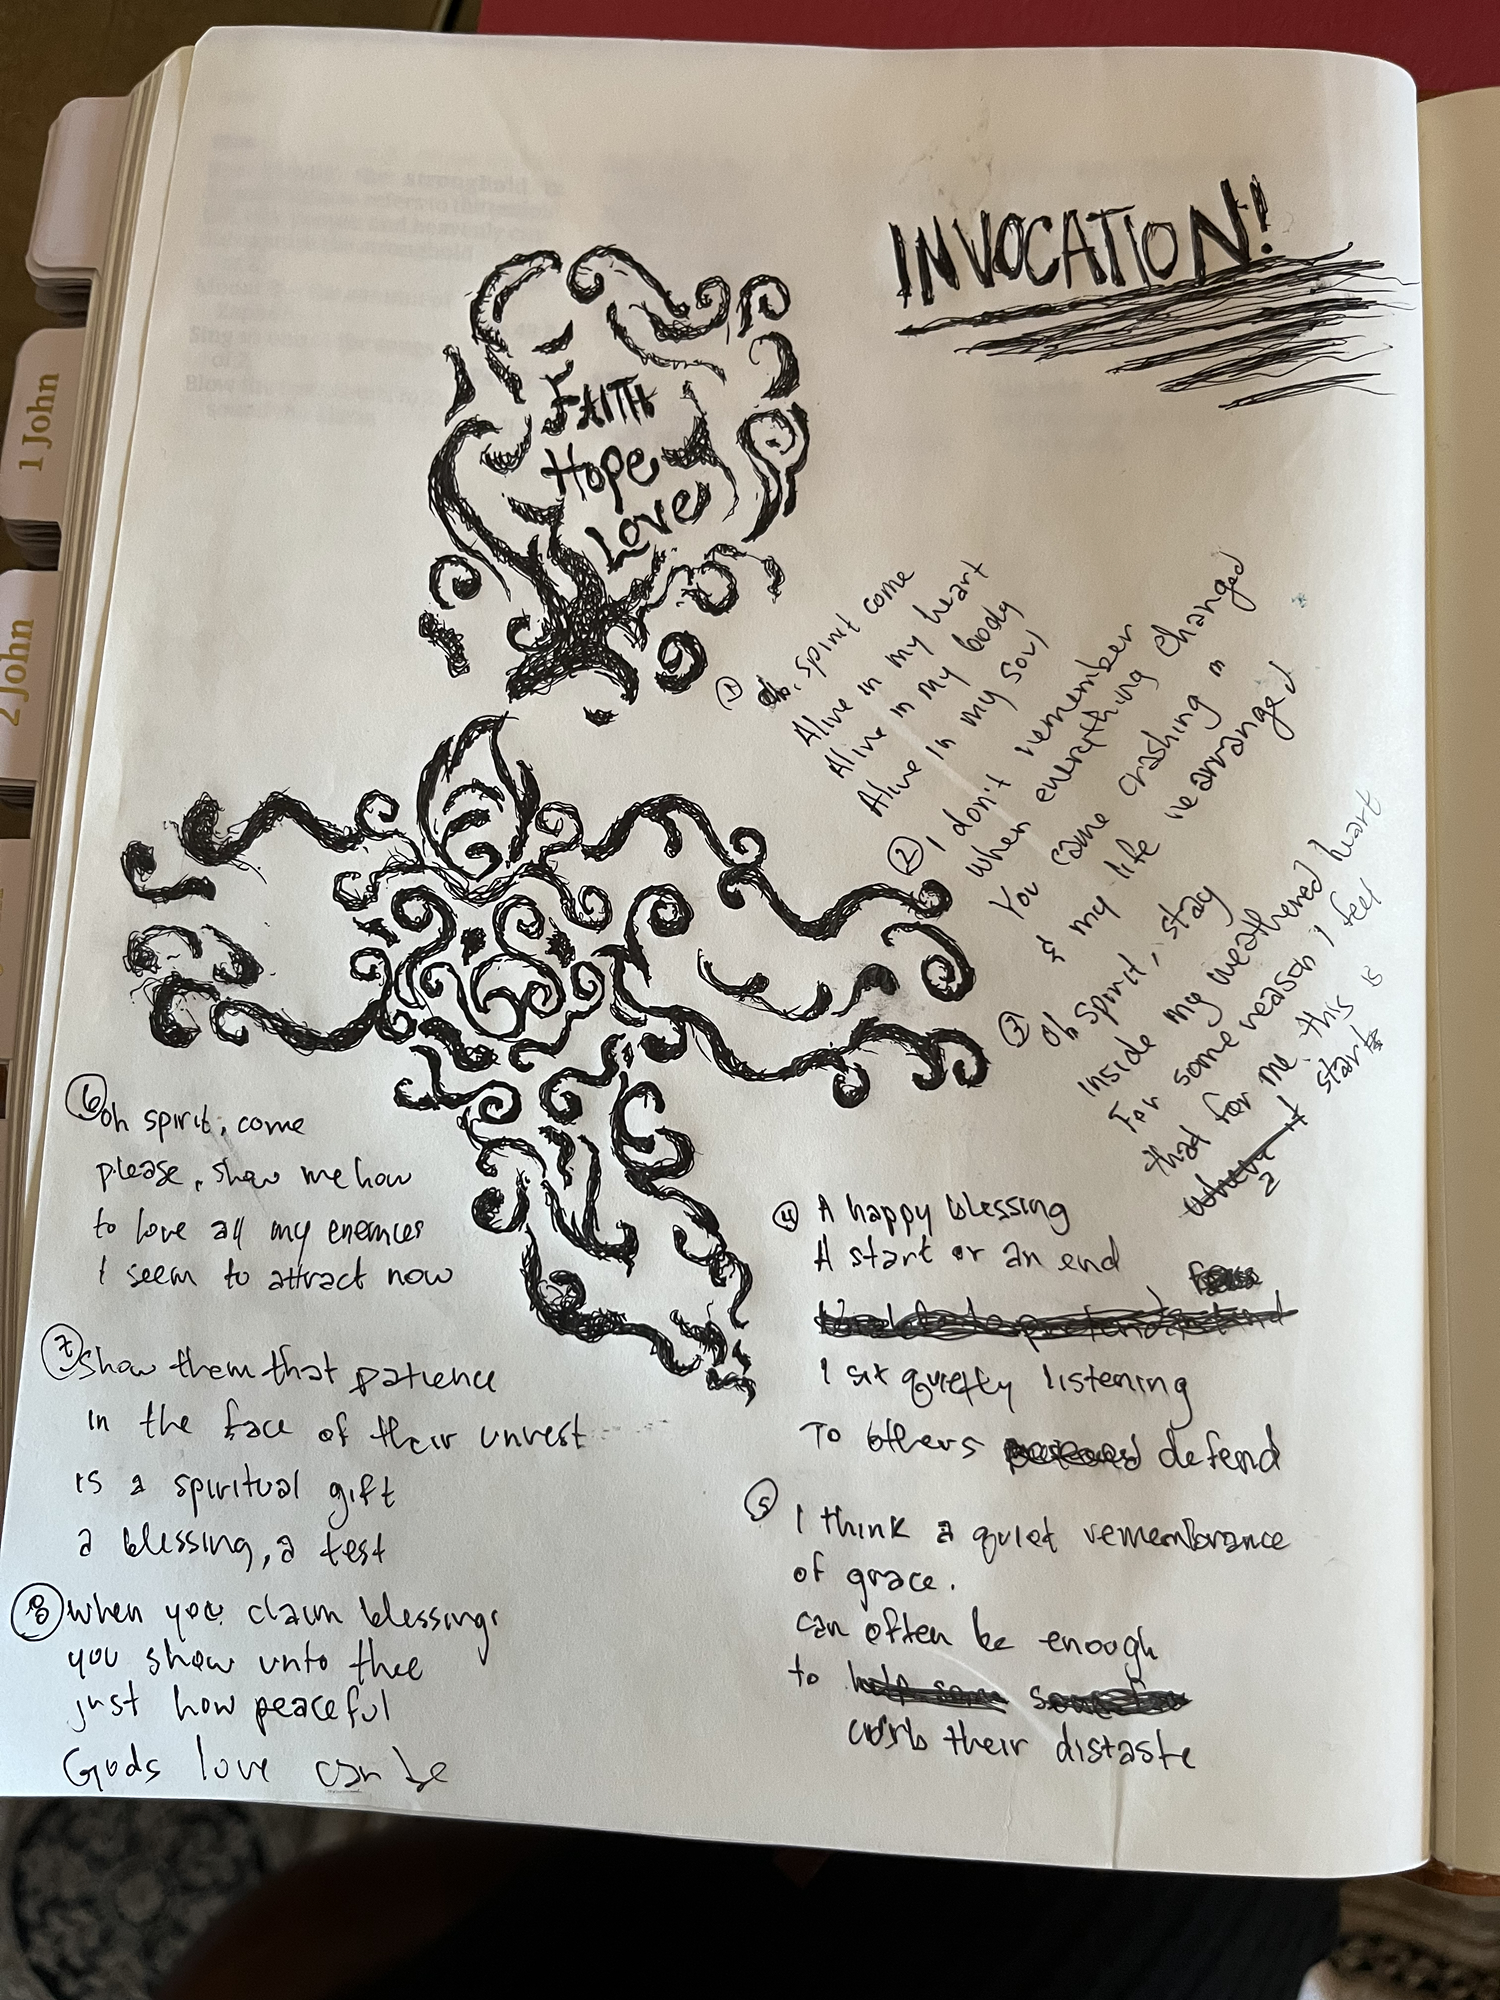 INVOCATION!
FAITH
Hope
Love
① oh, spirit come
Alive in my heart
Alive in my body
Alive in my soul
② I don't remember
when everything changed
You came crashing in
& my life rearranged
③ oh spirit, stay
inside my weathered heart
For some reason I feel
that for me this is
where it starts
④ A happy blessing
A start or an end
I sit quietly listening
To others defend
⑤ I think a quiet remembrance
of grace.
can often be enough
to
curb their distaste
⑥ oh spirit, come
please, show me how
to love all my enemies
I seem to attract now
⑦ show them that patience
in the face of their unrest
is a spiritual gift
a blessing, a test
⑧ when you claim blessings
you show unto thee
just how peaceful
Gods love can be
1 John
2 John